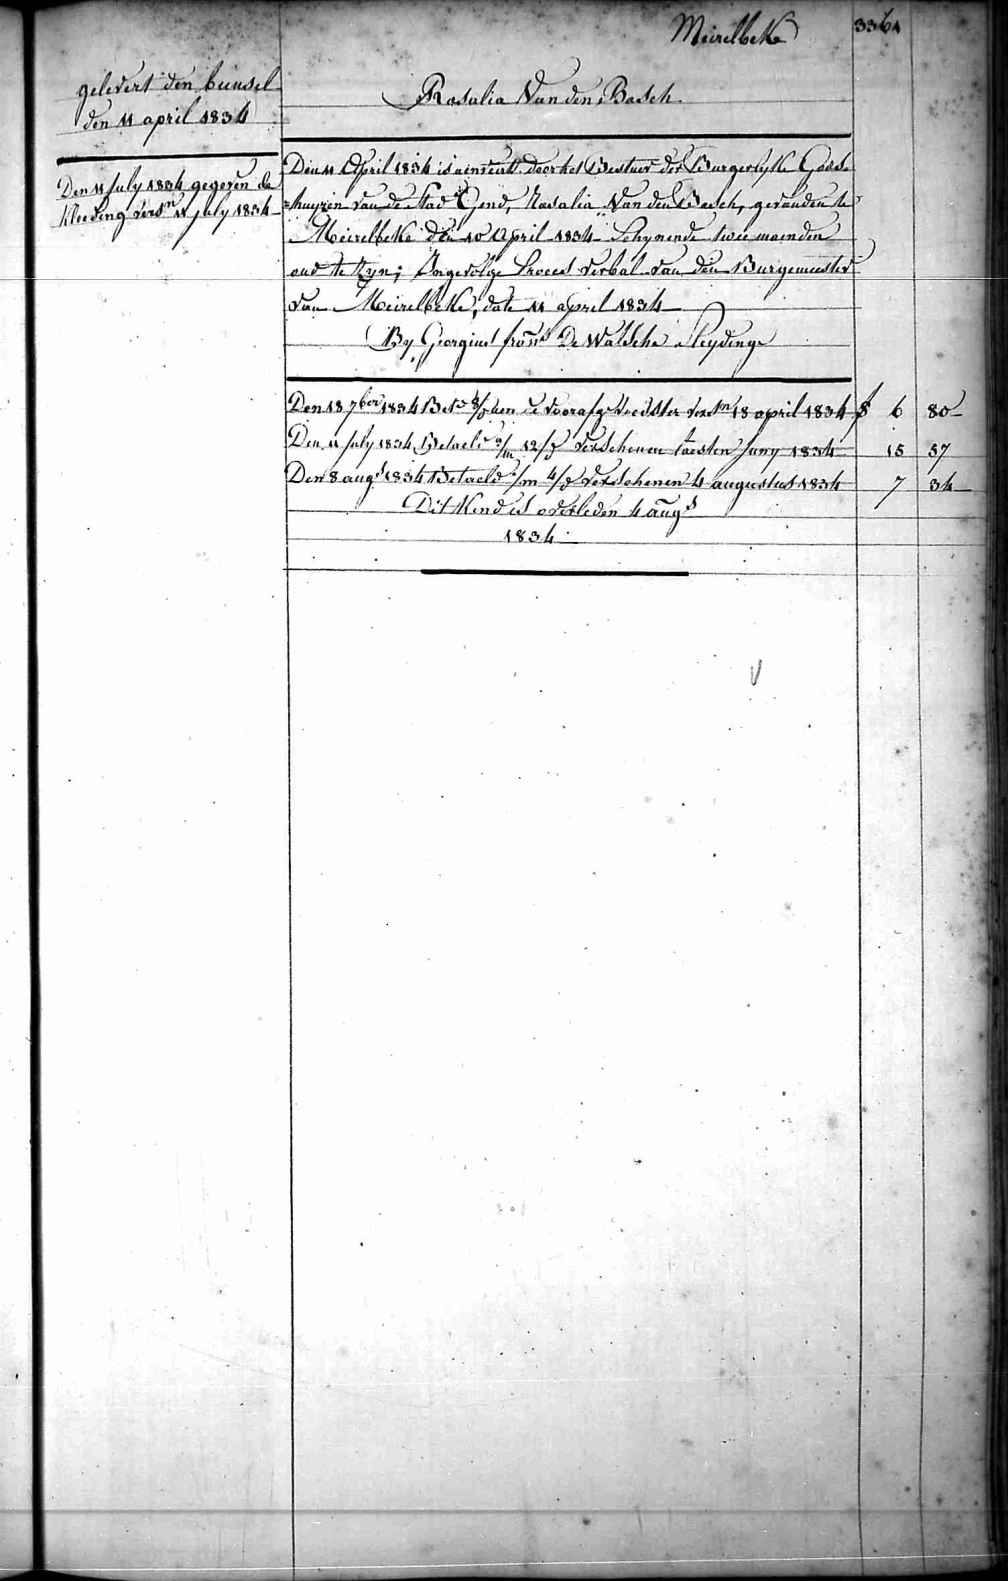 Meirelbeke
336
gelevert den bunsel
den 11 april 1834
Rosalia Van den Bosch.
Den 11 July 1834 gegeven de
kleeding versn 11 July 1834
Den 11 April 1834 is aenveirt door het Bestuer der Burgerlyke Gods-
huyzen van de Stad Gend, Rosalia Van den Bosch, gevonden te
Meirelbeke den 10 April 1834 Schynende twee maenden
oud te zyn; Ingevolge Proces verbal van den Burgemeester
van Meirelbeke, date 11 april 1834
By Georgius frans De Walsche Sleydinge
Den 18 7ber 1834 aen de voorafg voedster versn 18 april 1834 6 80
Den 11 July 1834 Betaeld 12/ verschenen laesten Juny 1834 15 57
Den 8 augs 1834 Betaeld 4/ verschenen 4 augustus 1834 7 34
Dit Kind is overleden 4 augs
1834